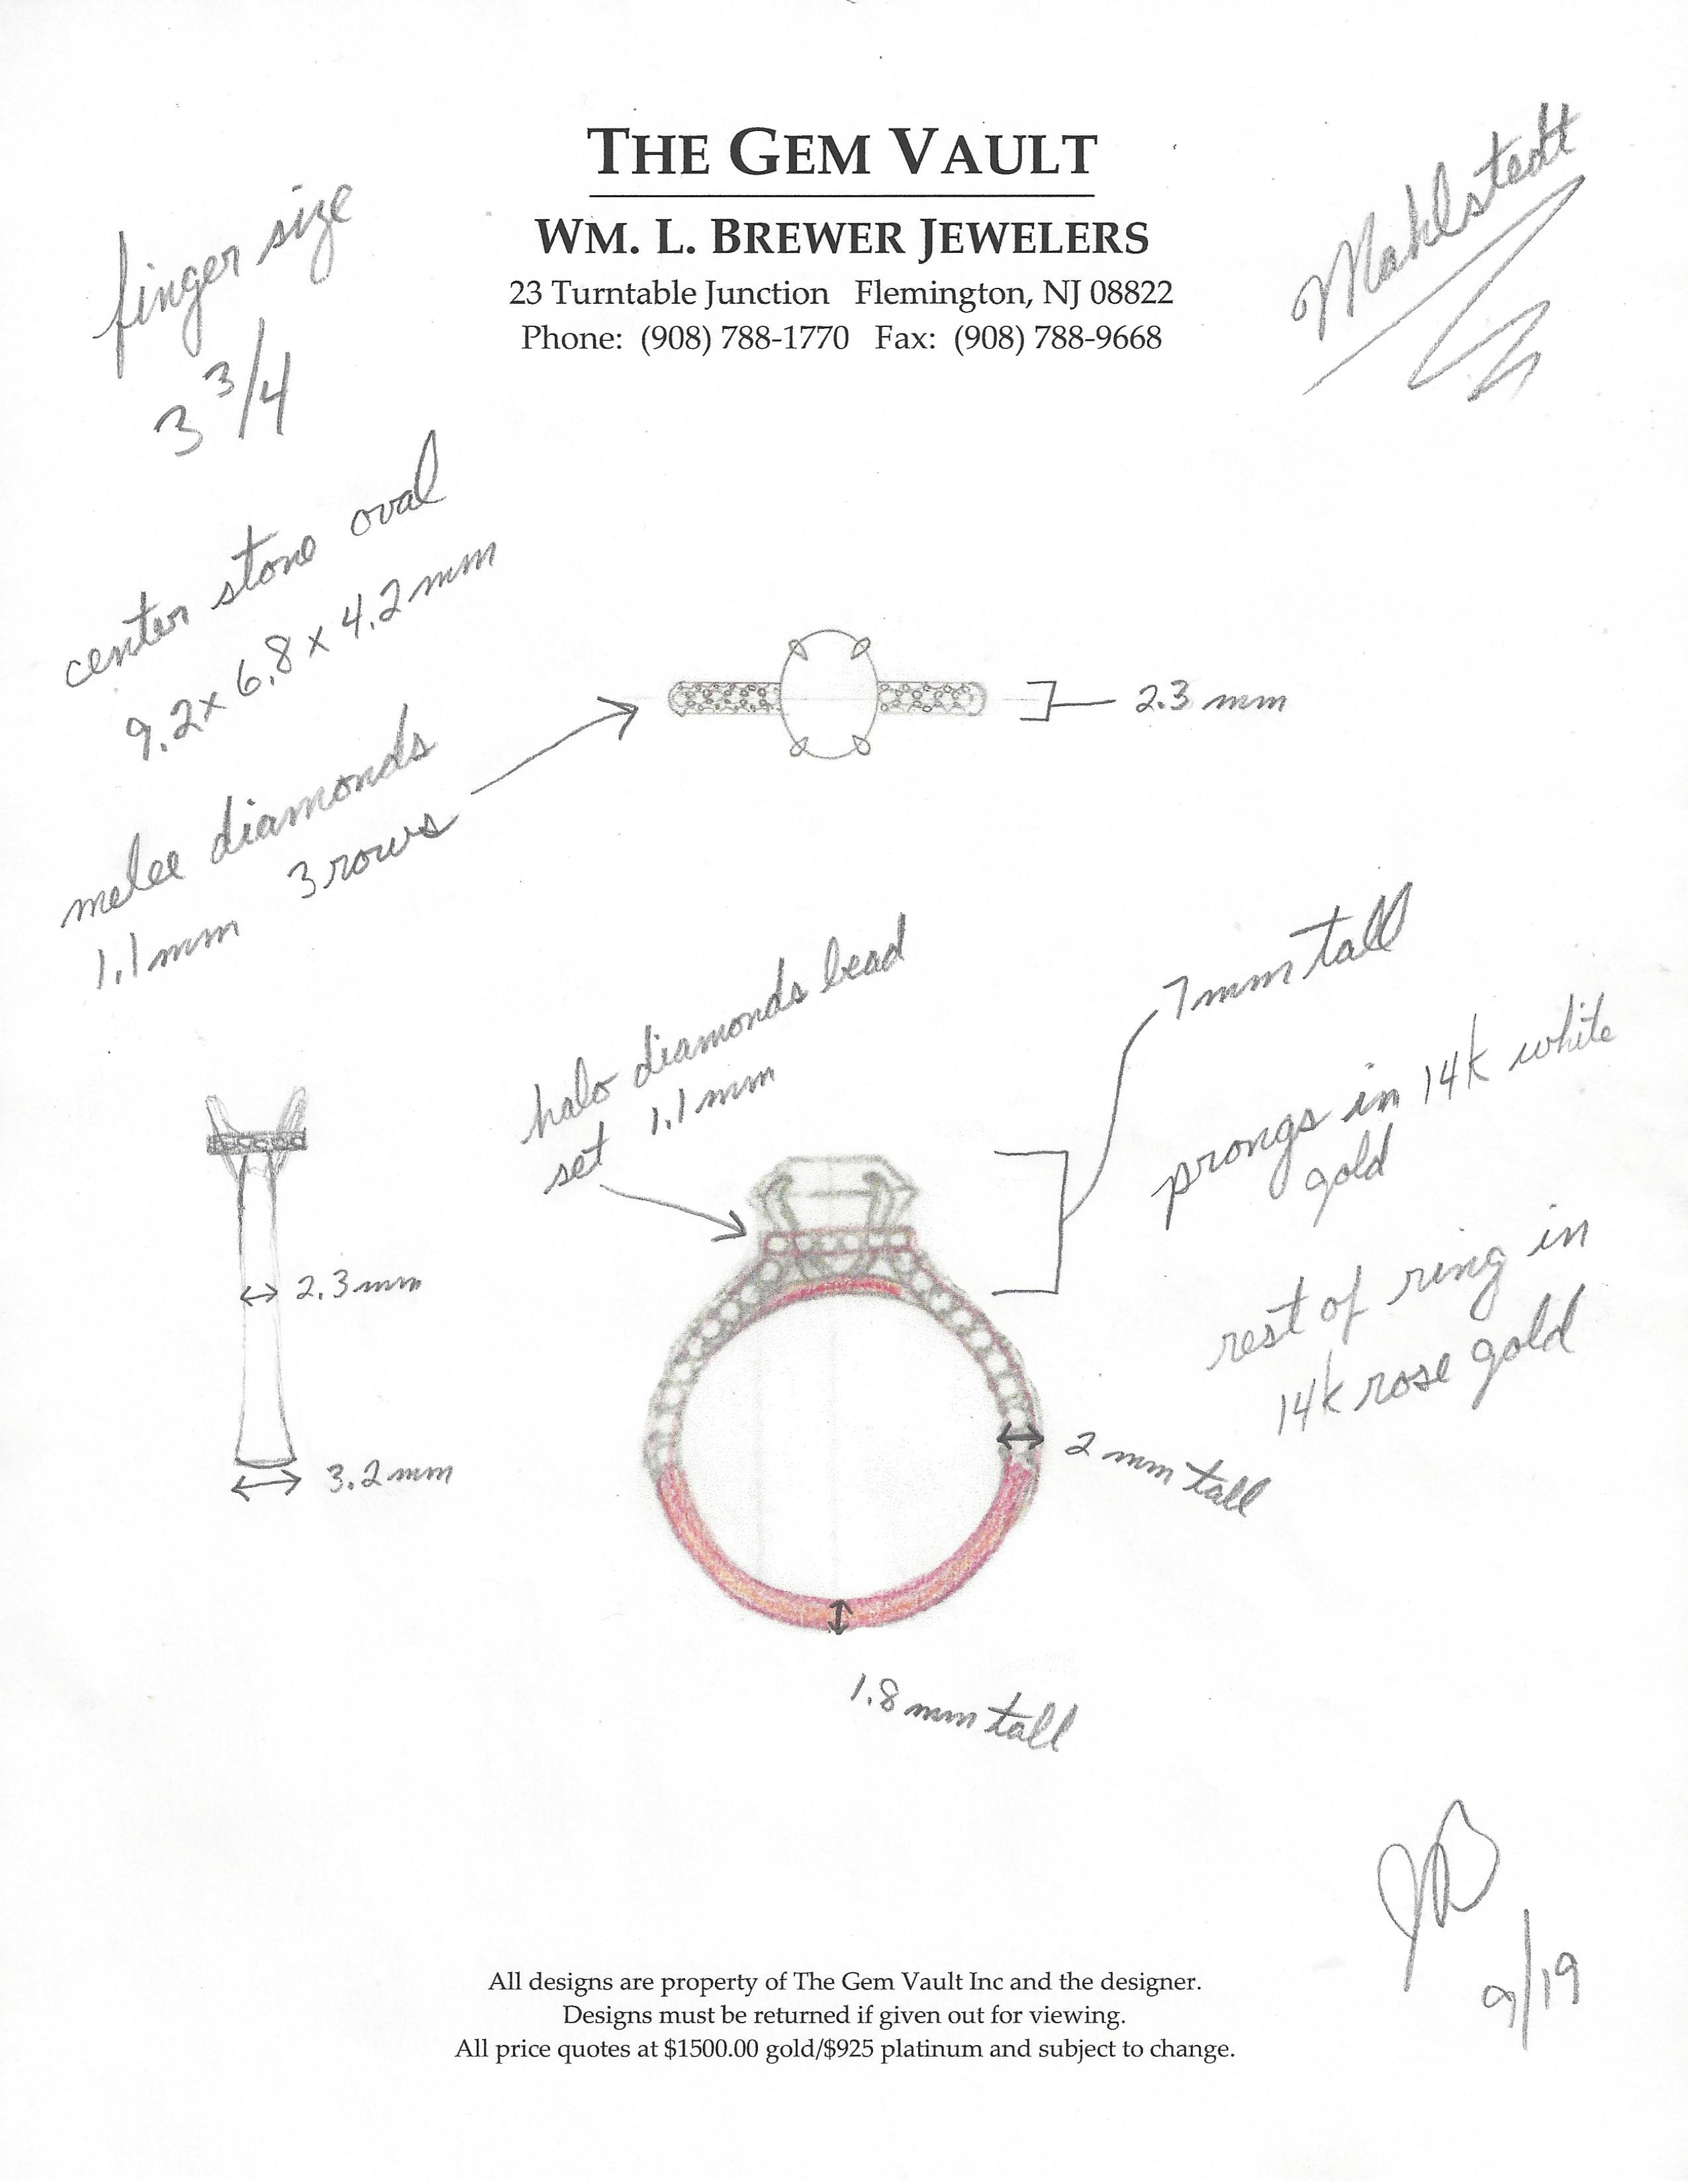 THE GEM VAULT
WM. L. BREWER JEWELERS
23 Turntable Junction Flemington, NJ 08822
Phone: (908) 788-1770 Fax: (908) 788-9668
Mahlstedt
finger size
3 3/4
center stone oval
9.2 x 6.8 x 4.2 mm
melee diamonds
1.1 mm 3 rows
2.3 mm
halo diamonds bead
set 1.1 mm
7 mm tall
prongs in 14k white
gold
rest of ring in
14k rose gold
2.3 mm
3.2 mm
2 mm tall
1.8 mm tall
9/19
All designs are property of The Gem Vault Inc and the designer.
Designs must be returned if given out for viewing.
All price quotes at $1500.00 gold/$925 platinum and subject to change.